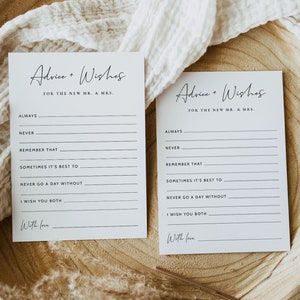 Advice + Wishes
FOR THE NEW MR. & MRS.
ALWAYS
NEVER
REMEMBER THAT
SOMETIMES IT'S BEST TO
NEVER GO A DAY WITHOUT
I WISH YOU BOTH
With love
Advice + Wishes
FOR THE NEW MR. & MRS.
ALWAYS
NEVER
REMEMBER THAT
SOMETIMES IT'S BEST TO
NEVER GO A DAY WITHOUT
I WISH YOU BOTH
With love